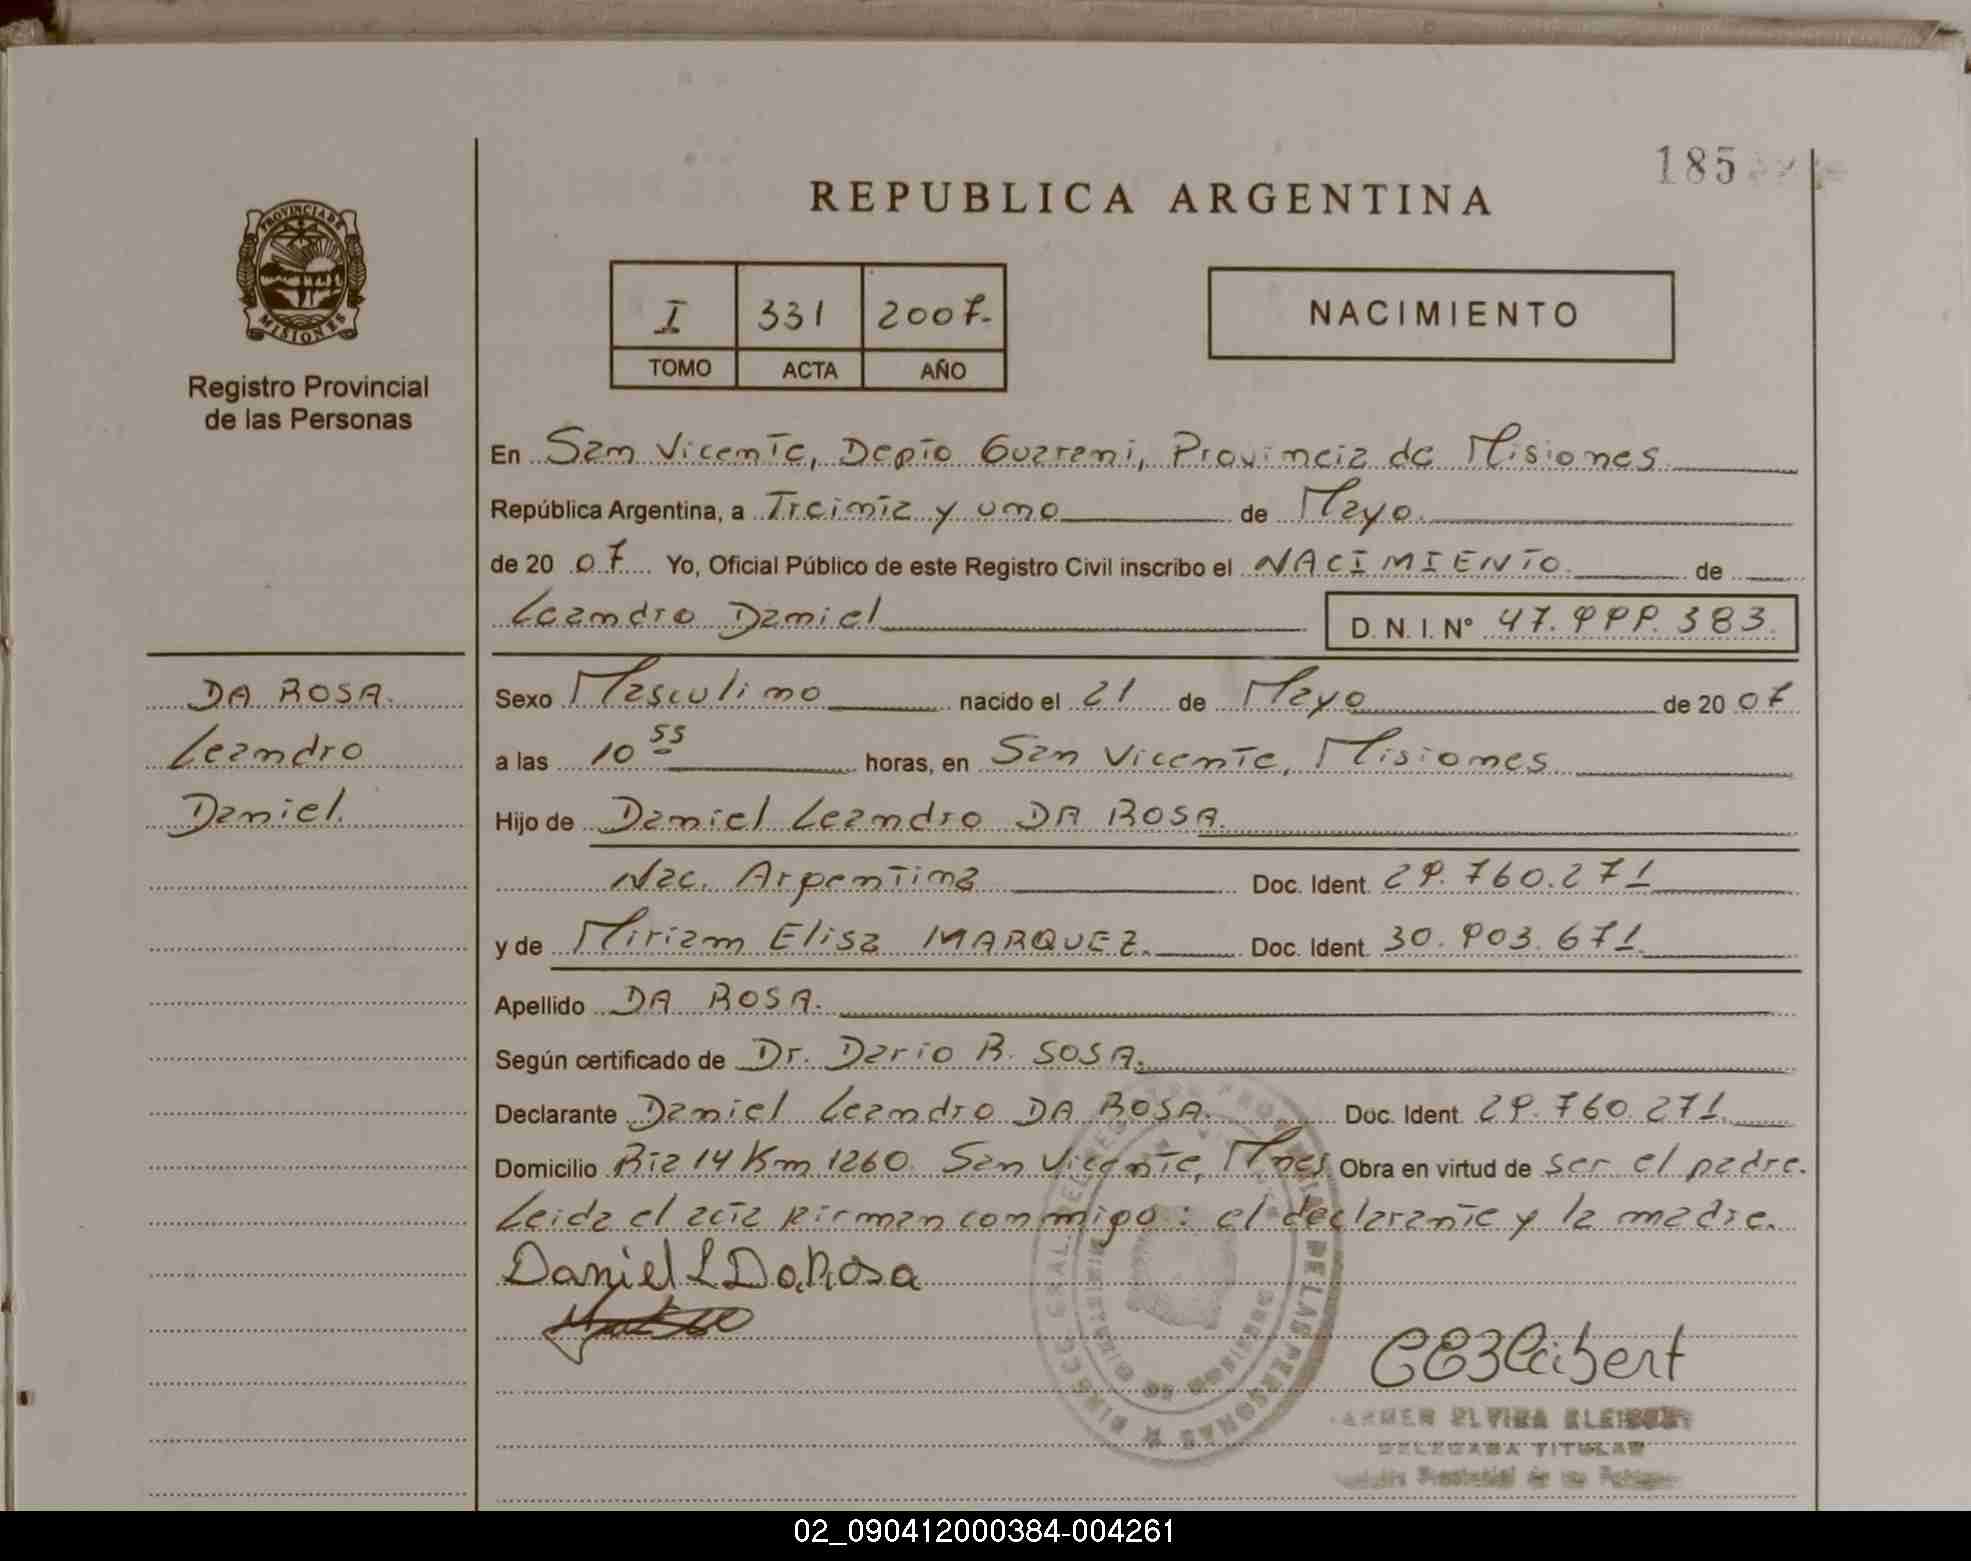 185
REPUBLICA ARGENTINA
PROVINCIA DE
MISIONES
Registro Provincial
de las Personas
I 331 2007.-
TOMO ACTA AÑO
NACIMIENTO
En San Vicente, Depto Guarani, Provincia de Misiones
República Argentina, a Treinta y uno de Mayo.
de 20 07 Yo, Oficial Público de este Registro Civil inscribo el NACIMIENTO de
Leandro Daniel D. N. I. N° 47.999.383.
DA ROSA.
Leandro
Daniel.
Sexo Masculino nacido el 21 de Mayo de 20 07
a las 10 55 horas, en San Vicente, Misiones
Hijo de Daniel Leandro DA ROSA.
Nac. Argentina Doc. Ident. 29.760.271
y de Miriam Elisa MARQUEZ. Doc. Ident. 30.903.671
Apellido DA ROSA.
Según certificado de Dr. Dario R. SOSA.
Declarante Daniel Leandro DA ROSA. Doc. Ident. 29.760.271
Domicilio Rta 14 Km 1260 San Vicente, Mnes Obra en virtud de ser el padre.
Leida el acta firman conmigo: el declarante y la madre.
Daniel L DaRosa
DE LAS PERSONAS
ELVIRA
DELEGADA TITULAR
02_090412000384-004261